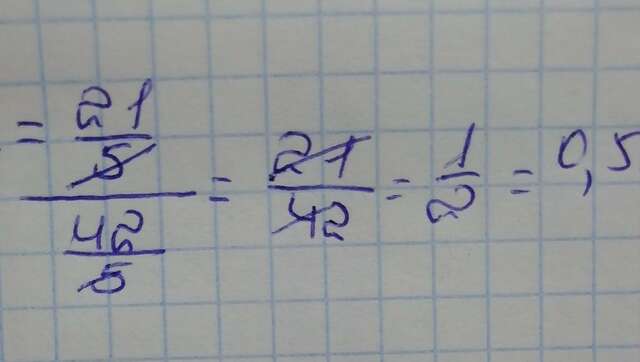 = 21/5 / 42/5 = 21/42 = 1/2 = 0,5